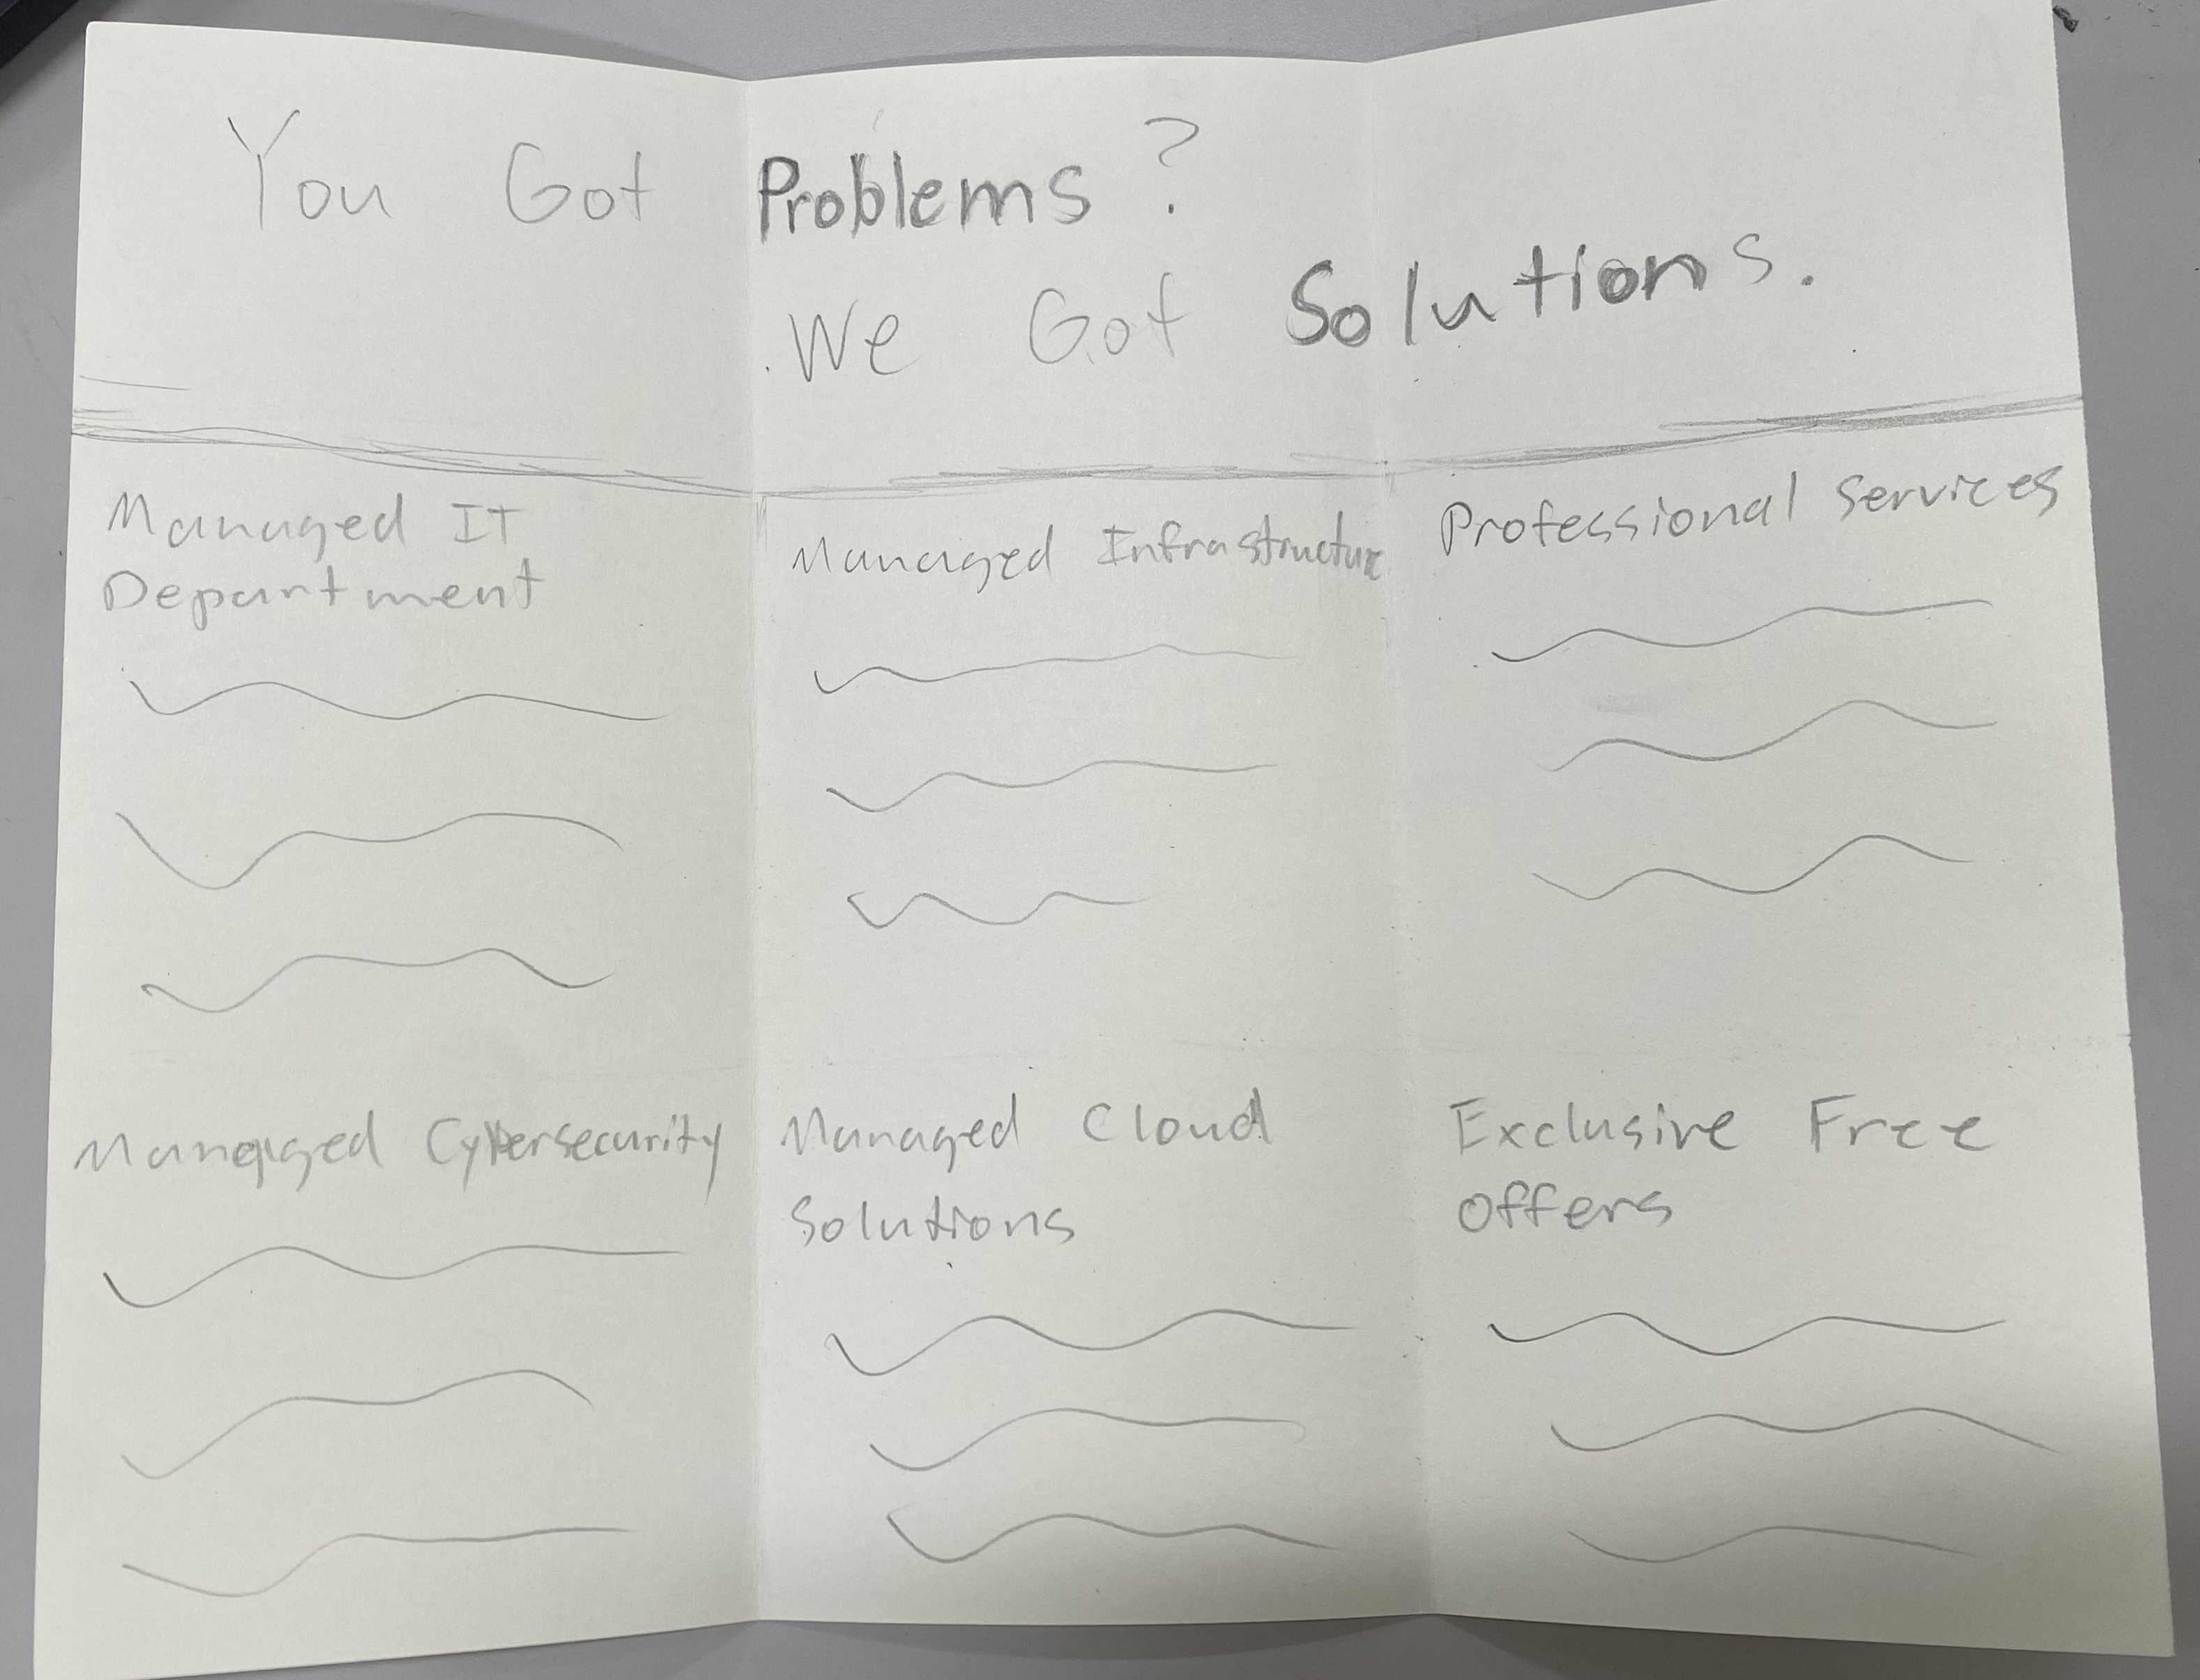 You Got Problems?
We Got Solutions.
Managed IT
Department
Managed Infrastructure
Professional Services
Managed Cybersecurity
Managed Cloud
Solutions
Exclusive Free
Offers